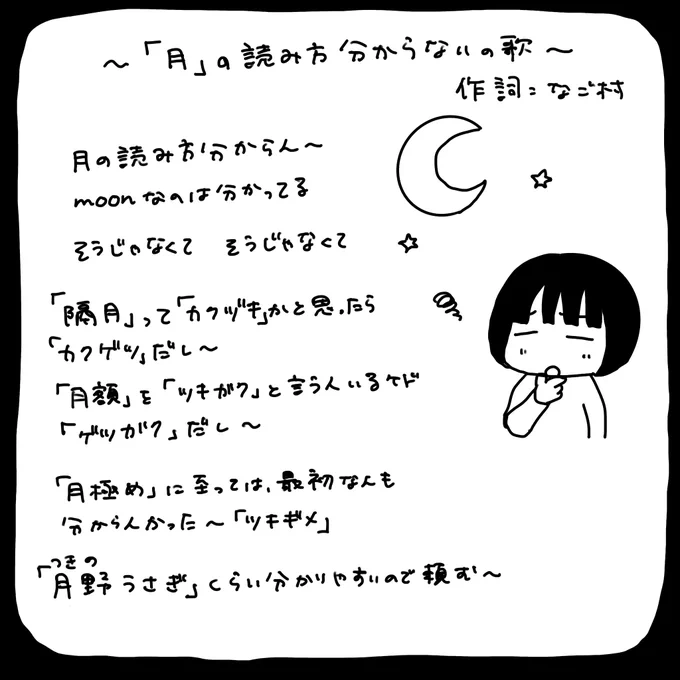 ～「月」の読み方分からないの歌～
作詞：なご村
月の読み方分からん～
moonなのは分かってる
そうじゃなくて そうじゃなくて
「隔月」って「カクヅキ」かと思ったら
「カクゲツ」だし～
「月額」を「ツキガク」と言う人いるケド
「ゲツガク」だし～
「月極め」に至っては、最初なんも
分からんかった～「ツキギメ」
つきの
「月野うさぎ」くらい分かりやすいので頼む～